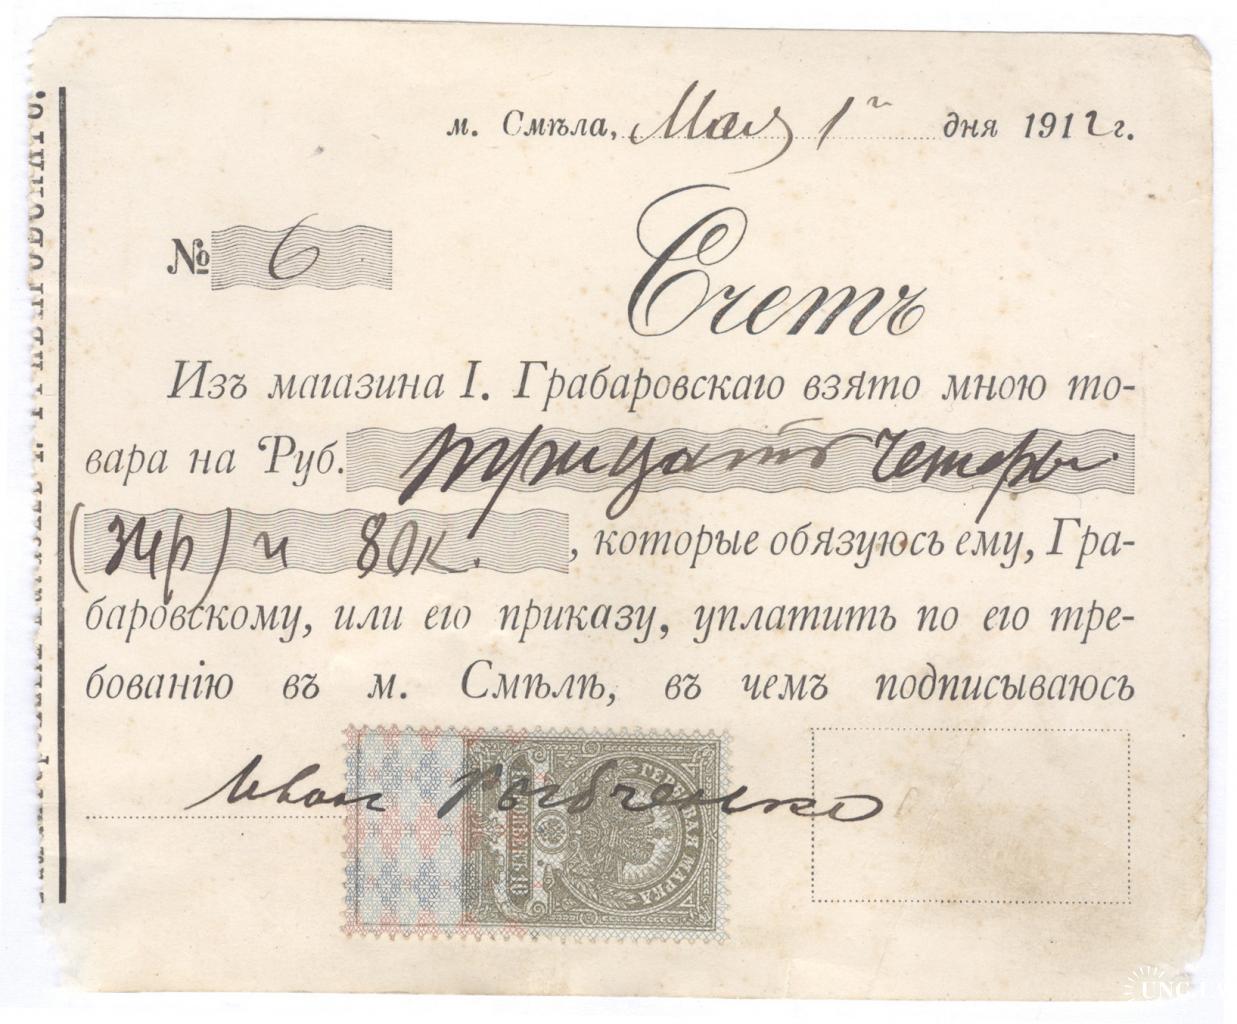 м. Смѣла, Мая 1го дня 1912 г.
№ 6
Счетъ
Изъ магазина І. Грабаровскаго взято мною то-
вара на Руб. тридцать четыры
(34р) и 80к. , которые обязуюсь ему, Гра-
баровскому, или его приказу, уплатить по его тре-
бованію въ м. Смѣлѣ, въ чемъ подписываюсь
Иван
ГЕРБОВАЯ МАРКА
10
UNC.UA